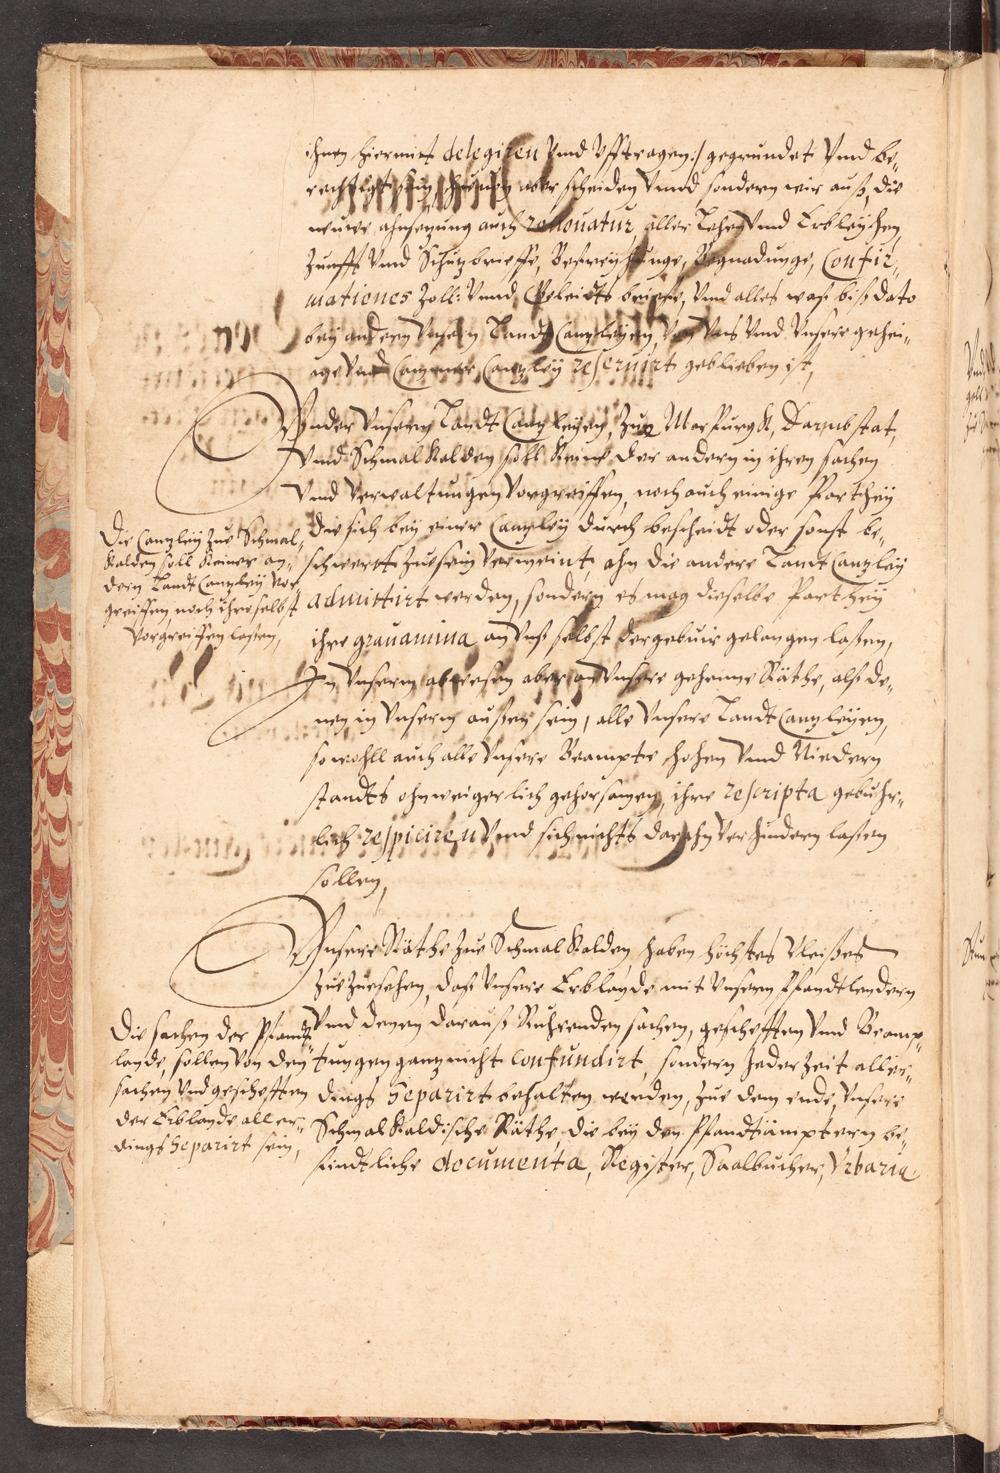 ihnen hiermit delegiren Vnd Vfftragen:/ gegrundet Vnd be-
rechtigt sein, hiervon aber scheiden Vnnd sondern wir auß, die
neuwe ahnsezung auch renouatur, aller Lehen Vnd Erbleyhen,
Zunfft Vnd Schuzbrieffe, Befreyhunge, Begnadunge, Confir-
mationes Zoll: Vnnd Gleidts brieffe, Vnd alles waß biß dato
bey andern Vnsern Landt Canzleyen, Vor Vns Vnd Vnsere gehei-
me Vnd Cammer Canzley reseruirt geblieben ist,
Vnder Vnsern Landt Canzleyen, Zue Marpurgk, Darmbstat,
Vnnd Schmalkalden soll Keine der andern in ihren sachen
Vnd Verwaltungen Vorgreiffen, noch auch einige Parthey
die sich bey einer Canzley durch bescheidt oder sonst be-
schwert Zue sein Vermeint, ahn die andere Landt Canzley
admittirt werden, sondern es mag dieselbe Parthey
ihre grauamina an Vnß selbst der gebuir gelangen laßen,
In Vnserm abwesen aber an Vnsere geheime Räthe, alß de-
nen, in Vnserm außen sein, alle Vnsere Landt Canzleyen,
so wohll auch alle Vnsere Beampte hohen Vnd Niedern
standts ohnweigerlich gehorsamen, ihre rescripta gebuhr-
lich respiciren Vnnd sich nichts daran Verhindern laßen
sollen,
Die Canzley Zue Schmal-
kalden soll Keiner an-
dern Landt Canzley Vor
greiffen noch ihr selbst
Vorgreiffen laßen,
Vnsere Räthe Zue Schmalkalden haben höchstes Vleißes
Zue Zuesehen, daß Vnsere Erblande mit Vnsern Pfandtlendern
Vnd denen darauß Ruhrenden sachen, geschefften Vnd Beamp-
tungen ganz nicht confundirt, sondern Jeder Zeit aller-
dings Separirt behalten werden, Zue dem ende, Vnsere
Schmalkaldische Räthe, die bey den Pfandtämptern be-
findtliche documenta, Register, Saalbucher, Vrbaria
Die sachen der Pfandt
lande, sollen Von den
sachen Vnd geschefften
der Erblande aller-
dings Separirt sein,